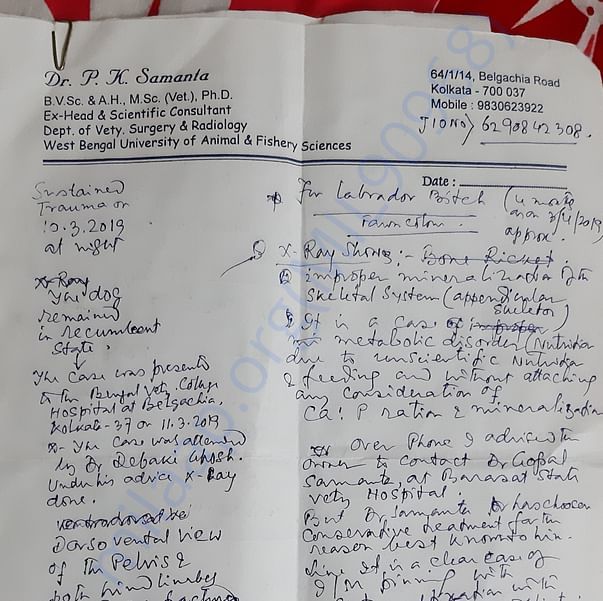 Dr. P. K. Samanta
B.V.Sc. & A.H., M.Sc. (Vet.), Ph.D.
Ex-Head & Scientific Consultant
Dept. of Vety. Surgery & Radiology
West Bengal University of Animal & Fishery Sciences
64/1/14, Belgachia Road
Kolkata - 700 037
Mobile : 9830623922
JIO NO> 6290842308.
Date :
Sustained
Trauma on
10.3.2019
at night
X-Ray
The dog
remained
in recumbent
State.
The case was presented
to the Bengal Vety. College
Hospital at Belgachia,
Kolkata-37 on 11.3.2019
The case was attended
by Dr Debaki Ghosh.
Under his advice X-Ray
done.
Dorso ventral view
of the Pelvis &
both hind limbs
For Labrador Bitch (4 months
as on 3/4/2019
Fawn colour. approx.
X-Ray Shows :- Bone Ricket.
improper mineralization of the
Skeletal System (appendicular
skeleton)
It is a case of improper
metabolic disorder (Nutrition
due to unscientific Nutrition
& feeding and without attaching
any consideration of
Ca: P ration & mineralization
Over Phone I advised the
owner to contact Dr Gopal
Samanta, at Barasat State
Vety Hospital.
But Dr Samanta has choosen
Conservative treatment for the
reason best known to him.
Since it is a clear case of
I/M pinning with
with